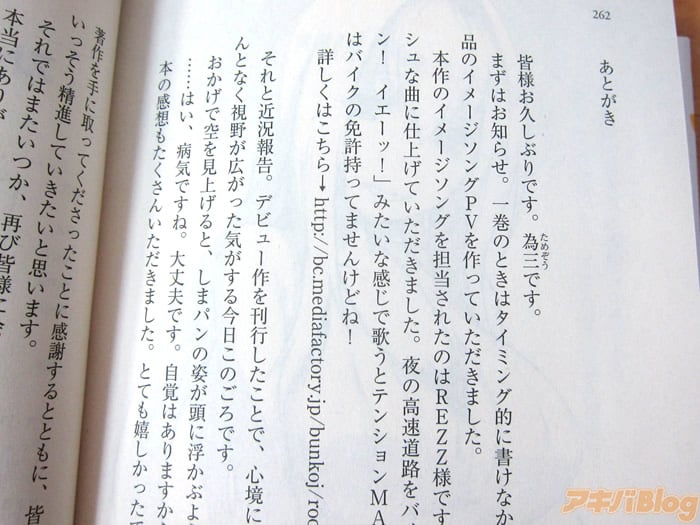 262
あとがき
皆様お久しぶりです。為三です。
ためぞう
まずはお知らせ。一巻のときはタイミング的に書けなか
品のイメージソングPVを作っていただきました。
本作のイメージソングを担当されたのはREZZ様です
シュな曲に仕上げていただきました。夜の高速道路をバ
ン！ イエーッ！」みたいな感じで歌うとテンションMA
はバイクの免許持ってませんけどね！
詳しくはこちら→http://bc.mediafactory.jp/bunkoj/roo
それと近況報告。デビュー作を刊行したことで、心境に
んとなく視野が広がった気がする今日このごろです。
おかげで空を見上げると、しまパンの姿が頭に浮かぶよ
……はい、病気ですね。大丈夫です。自覚はありますか
本の感想もたくさんいただきました。とても嬉しかった
著作を手に取ってくださったことに感謝するとともに、皆
いっそう精進していきたいと思います。
それではまたいつか、再び皆様に
本当にあり
アキバBlog